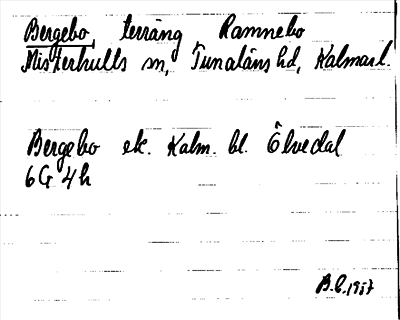 Bergebo, terräng, Ramnebo
Misterhults sn, Tunaläns hd, Kalmar l.
Bergebo ek. Kalm. bl. Ölvedal
6G 4h
B.C. 1957